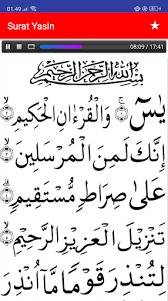 01.49
Surat Yasin
08:09 / 17:41
بِسْمِ اللّٰهِ الرَّحْمٰنِ الرَّحِيْمِ
يٰسٓ ۝ وَالْقُرْاٰنِ الْحَكِيْمِ ۝
اِنَّكَ لَمِنَ الْمُرْسَلِيْنَ ۝
عَلٰى صِرَاطٍ مُّسْتَقِيْمٍ ۝
تَنْزِيْلَ الْعَزِيْزِ الرَّحِيْمِ ۝
لِتُنْذِرَ قَوْمًا مَّآ اُنْذِرَ